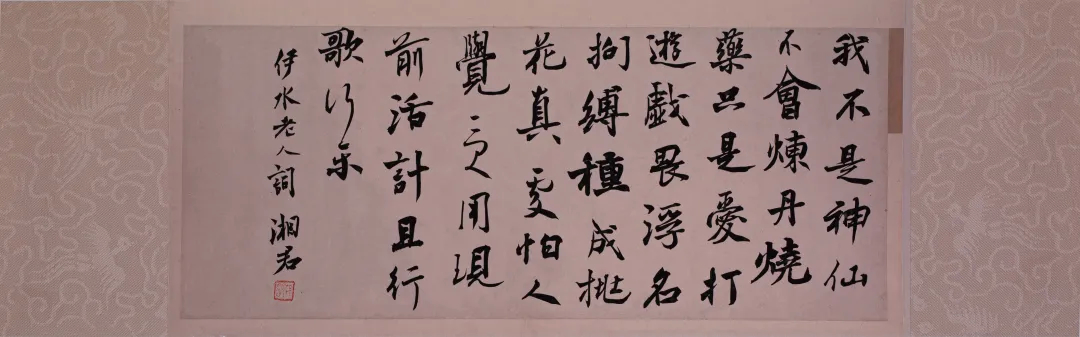 我不是神仙
不會煉丹燒
藥只是愛打
遊戲畏浮名
拘縛種成桃
花真處怕人
覺受用現
前活計且行
歌行樂
伊水老人詞 湘君